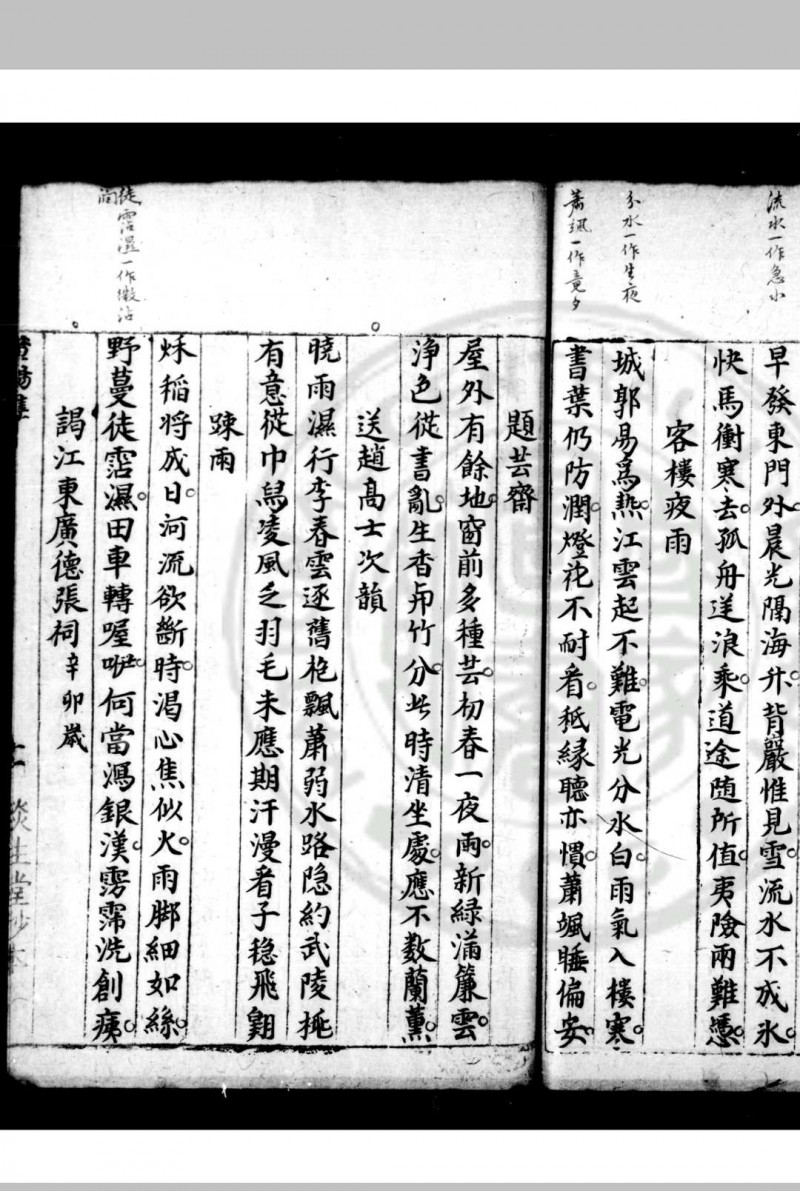 流水一作急水
早發東門外晨光隔海升背巖惟見雪流水不成氷
快馬衝寒去孤舟送浪乘道途随所值夷險兩難憑
客樓夜雨
分水一作生夜
城郭易爲熱江雲起不難電光分水白雨氣入樓寒
蕭颯一作竟夕
書葉仍防潤燈花不耐看秪緣聽亦慣蕭颯睡偏安
題芸齋
屋外有餘地窗前多種芸初春一夜雨新緑滿簾雲
淨色從書亂生香帘竹分此時清坐處應不数蘭薰
送趙高士次韻
曉雨濕行李春雲逐舊袍飄蕭弱水路隐約武陵桃
有意從巾舄凌風乏羽毛未應期汗漫看子稳飛翶
踈雨
徒霑濕一作微沾
秌稻将成日河流欲斷時渴心焦似火雨脚細如絲
野蔓徒霑濕田車轉喔咿何當瀉銀漢雱霈洗創痍
謁江東廣德張祠辛卯歲
淡生堂抄本